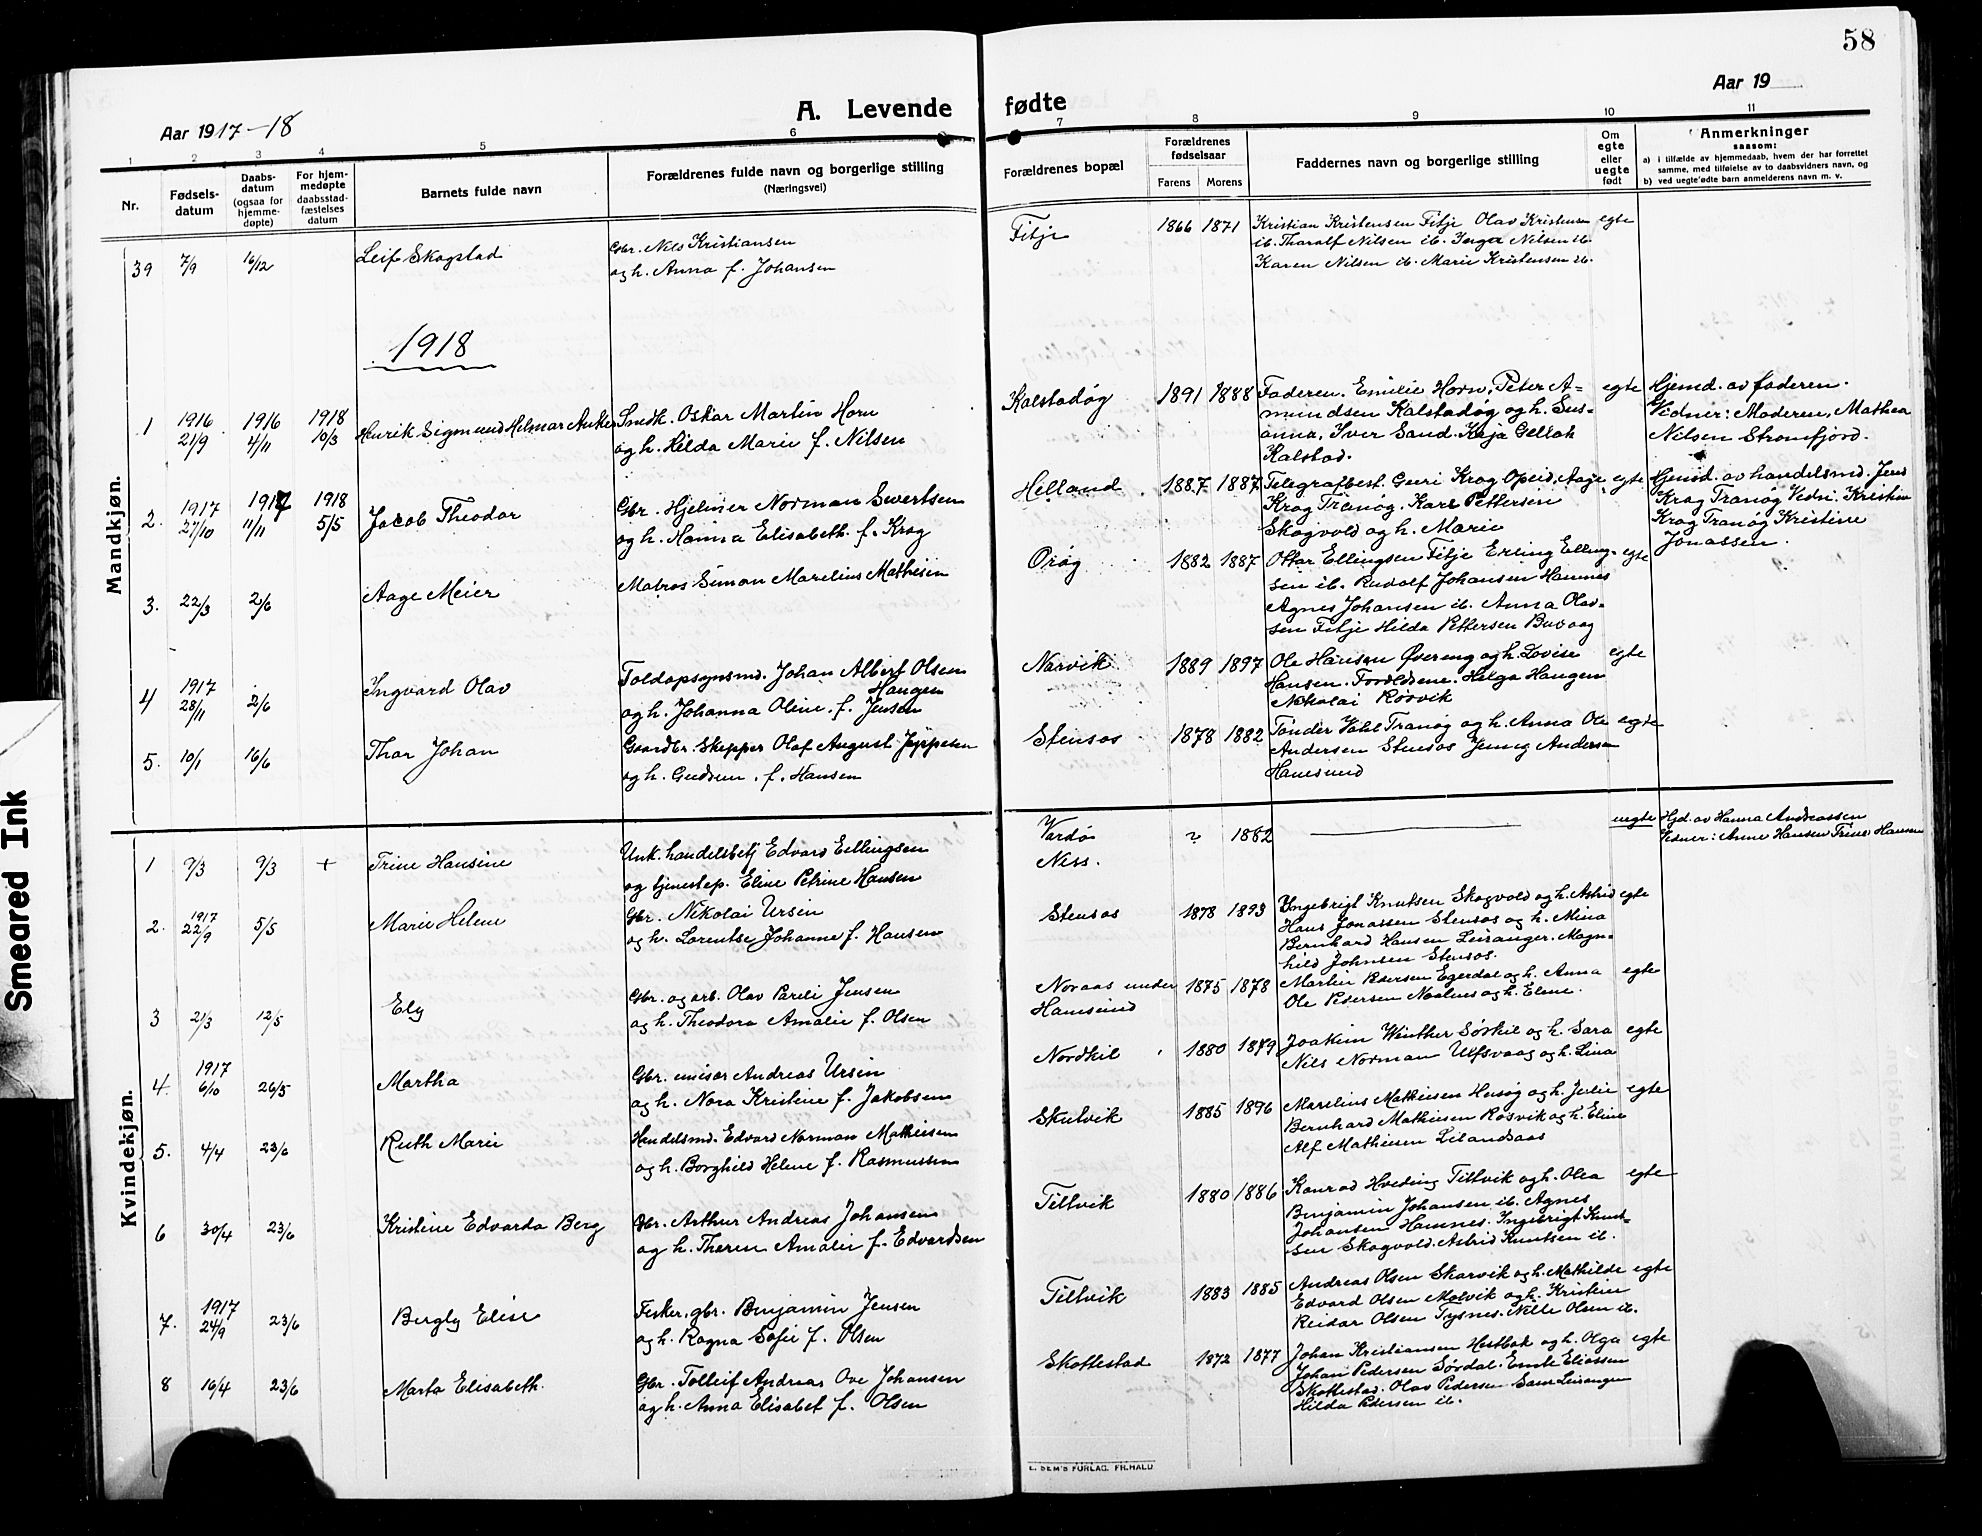 58
Aar 1917-18
A. Levende
fødte
Aar 19
1 2 3 4 5 6 7 8 9 10 11
Nr.
Fødsels-
datum
Daabs-
datum
(ogsaa for
hjemme-
døpte)
For hjem-
medøpte
daabsstad-
fæstelses
datum
Barnets fulde navn
Forældrenes fulde navn og borgerlige stilling
(Næringsvei)
Forældrenes bopæl
Forældrenes
fødselsaar
Farens Morens
Faddernes navn og borgerlige stilling
Om
egte
eller
uegte
født
Anmerkninger
saasom:
a) i tilfælde av hjemmedaab, hvem der har forrettet
samme, med tilføielse av to daabsvidners navn, og
b) ved uegte fødte barn anmelderens navn m. v.
39 7/9 16/12 Leif Skogstad
Gbr. Nils Kristiansen
og h. Anna f. Johansen
Fitje 1866 1871
Kristian Kristensen Fitje Olav Kristensen egte
ib. Tharalf Nilsen ib. Inga Nilsen ib.
Karen Nilsen ib. Marie Kristensen ib.
1918
Mandkjøn.
1 1916 21/9 1916 4/11 1918 10/3 Henrik Sigmund Helmar Anker
Smdk. Oskar Martin Horn
og h. Hilda Marie f. Nilsen
Kalstadøg 1891 1888
Faderen. Emilie Horn, Peter A-
mundsen Kalstadøg og h. Sus-
anna, Iver Sand. Kaja
Kalstad.
egte
Hjemd. av faderen.
Vidner: Moderen, Mathea
Nilsen Stromfjord.
2. 1917 27/10 1917 11/11 1918 5/5 Jacob Theodor
Gbr. Hjelmer Norman Sivertsen
og h. Hanna Elisabeth. f. Krog
Helland 1887 1887
Telegrafbest. Guri Krog Opeid, Aage
Krog Tranøg. Karl Pettersen
Skogvold og h. Marie
egte
Hjemd. av handelsmd. Jens
Krog Tranøg Vedn: Kristine
Krog Tranøg Kristine
Jonassen.
3. 22/3 2/6 Aage Meier
Matros Simon Marelius Mathisen
Orøg 1882 1887
Ottar Ellingsen Fitje Erling Elling-
sen ib. Rudolf Johansen Hamnes
Agnes Johansen ib. Anna Olav-
sen Fitje Hilda Pettersen Buvaag
egte
4 1917 28/11 2/6 Ingvard Olav
Toldopsynsmd. Johan Albert Olsen
Haugen
og h. Johanna Oline. f. Jensen
Narvik 1889 1897
Ole Hansen Øvereng og h. Lovise
Hansen. Forældrene. Helga Haugen
Nikolai Rørvik
egte
5. 10/1 16/6 Thor Johan
Gaardbr. Skipper Olaf August Jeppesen
og h. Gudrun. f. Hansen
Stensos 1878 1882
Tønder Vahl Tranøg og h. Anna Ole
Andersen Stensos Jenny Andersen
Hamsund
egte
Kvindekjøn.
1 9/3 9/3 + Trine Hansine
Unk. handelsbetj Edvard Ellingsen
og tjenestep. Eline Petrine Hansen
Vardø
Ness.
? 1882
uegte
Hjd. av Hanna Andreassen
Vidner: Anne Hansen Trine Hansen
2. 1917 22/9 5/5 Marie Helene
Gbr. Nikolai Ursin
og h. Lorentse Johanne f. Hansen
Stensos 1878 1893
Ingebrigt Knutsen Skogvold og h. Astrid
Hans Jonassen Stensos og h. Mina
Bernhard Hansen Leiranger. Magn-
hild Johnsen Stensos.
egte
3 21/3 12/5 Ely
Gbr. og arb. Olav Pareli Jensen
og h. Theodora Amalie f. Olsen
Noraas under
Hamsund
1875 1878
Martin Pedersen Egerdal og h. Anna
Ole Pedersen og h. Eline.
egte
4. 1917 6/10 26/5 Martha
Gbr. emisær Andreas Ursin
og h. Nora Kristine f. Jakobsen
Nordkil 1880 1879
Joakim Winther Sørkil og h. Sara
Nils Norman Ulfsvaag og h. Lina
egte
5. 4/4 23/6 Ruth Marie
Handelsmd. Edvard Norman Mathisen
og h. Borghild Helene f. Rasmussen
Skutvik 1885 1896
Marelius Mathisen Husøg og h. Julie
Bernhard Mathisen Røsvik og h. Eline
Alf Mathisen Lilandsaas
egte
6 30/4 23/6 Kristine Edvarda Berg
Gbr. Arthur Andreas Johansen
og h. Theren Amalie f. Edvardsen
Tiltvik 1880 1886
Konrad Hveding Tiltvik og h. Olea
Benjamin Johansen ib. Agnes
Johansen Hamnes. Ingebrigt Knut-
sen Skogvold. Astrid Knutsen ib.
egte
7. 1917 24/9 23/6 Bergly Elise
Fisker, gbr. Benjamin Jensen
og h. Ragna Sofie f. Olsen
Tiltvik 1883 1885
Andreas Olsen Skarvik og h. Mathilde
Edvard Olsen Molvik og h. Kristine
Reidar Olsen Tysnes. Nille Olsen ib.
egte
8 16/4 23/6 Marta Elisabeth.
Gbr. Tolleif Andreas Ove Johansen
og h. Anna Elisabet f. Olsen
Skottestad 1872 1877
Johan Kristiansen Hestbak og h. Olga
Johan Pedersen Sørdal. Emil Eliassen
Skottestad. Olav Pedersen Leiranger
Hilda Pedersen ib.
egte
FORLAG. FR.HALD
Smeared Ink